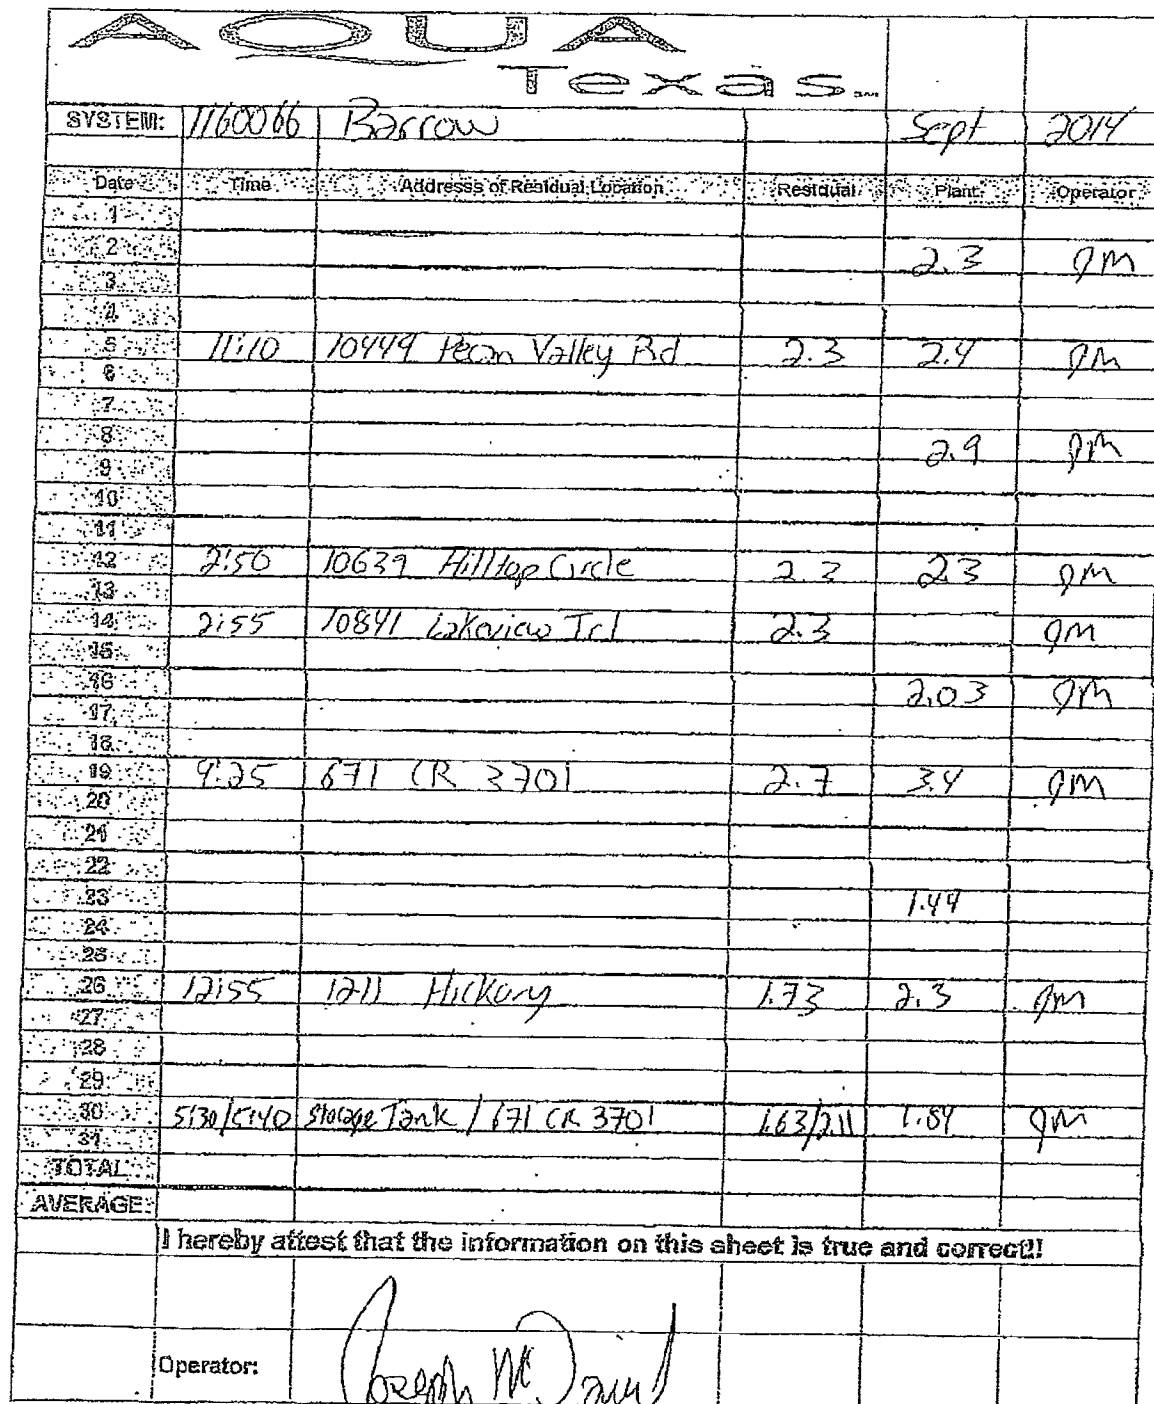 AQUA
Texas
SYSTEM: 1160066 Barrow Sept 2014
Date Time Addresss of Residual Location Residual Plant Operator
1
2 2.3 JM
3
4
5 11:10 10449 Pecan Valley Rd 2.3 2.4 JM
6
7
8 2.9 JM
9
10
11
12 2:50 10639 Hilltop Circle 2.3 2.3 JM
13
14 2:55 10841 Lakeview Trl 2.3 JM
15
16 2.03 JM
17
18
19 9:25 671 CR 3701 2.7 3.4 JM
20
21
22
23 1.49
24
25
26 12:55 1211 Hickory 1.73 2.3 JM
27
28
29
30 5:30/5:40 Storage Tank / 671 CR 3701 1.63/2.11 1.84 JM
31
TOTAL
AVERAGE:
I hereby attest that the information on this sheet is true and correct!!
Operator: Joseph Mc